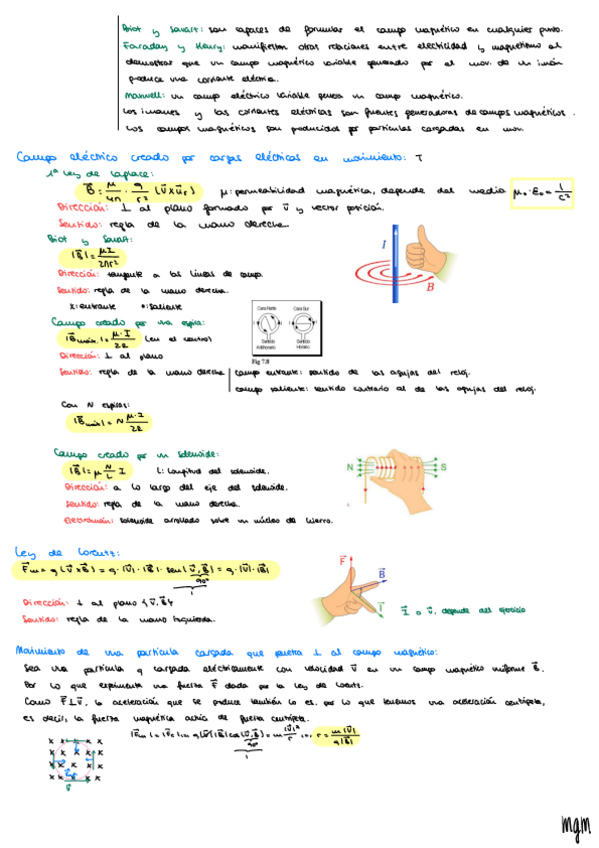 Biot y Savart: son capaces de formular el campo magnético en cualquier punto.
Faraday y Henry: manifiestan otras relaciones entre electricidad y magnetismo al
demostrar que un campo magnético variable generado por el mov. de un imán
produce una corriente eléctrica.
Maxwell: un campo eléctrico variable genera un campo magnético.
Los imanes y las corrientes eléctricas son fuentes generadoras de campos magnéticos.
Los campos magnéticos son producidos por partículas cargadas en mov.
Campo eléctrico creado por cargas eléctricas en movimiento: T
1ª Ley de Laplace:
B⃗ = μ/4π · q/r² (v⃗ x u⃗r) μ: permeabilidad magnética, depende del medio μ₀·ε₀ = 1/c²
Dirección: ⊥ al plano formado por v⃗ y vector posición.
Sentido: regla de la mano derecha.
Biot y Savart:
Dirección: tangente a las líneas de campo.
Sentido: regla de la mano derecha.
x: entrante •: saliente
I
B
Campo creado por una espira:
(en el centro)
Dirección: ⊥ al plano
Sentido: regla de la mano derecha | campo entrante: sentido de las agujas del reloj.
campo saliente: sentido contrario al de las agujas del reloj.
Cara Norte Cara Sur
Sentido Antihorario Sentido Horario
Fig 7.8
Con N espiras:
Campo creado por un solenoide:
|B⃗| = μ N/L I L: longitud del solenoide.
Dirección: a lo largo del eje del solenoide.
Sentido: regla de la mano derecha.
Electroimán: solenoide arrollado sobre un núcleo de hierro.
N S
Ley de Lorentz:
F⃗m = q (v⃗ x B⃗) = q · |v⃗| · |B⃗| · sen(v⃗, B⃗) = q · |v⃗| · |B⃗|
90°
1
Dirección: ⊥ al plano
Sentido: regla de la mano izquierda.
F⃗
B⃗
I⃗
I⃗ o v⃗, depende del ejercicio
Movimiento de una partícula cargada que penetra ⊥ al campo magnético:
Sea una partícula q cargada eléctricamente con velocidad v⃗ en un campo magnético uniforme B⃗.
Por lo que experimenta una fuerza F⃗ dada por la ley de Lorentz.
Como F⃗ ⊥ v⃗, la aceleración que se produce también lo es, por lo que tenemos una aceleración centrípeta,
es decir, la fuerza magnética actúa de fuerza centrípeta.
r = m|v⃗|/q|B⃗|
90°
1
mgm